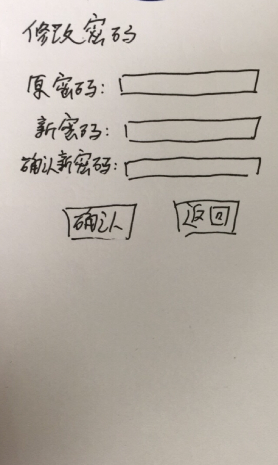 修改密码
原密码:
新密码:
确认新密码:
确认 返回